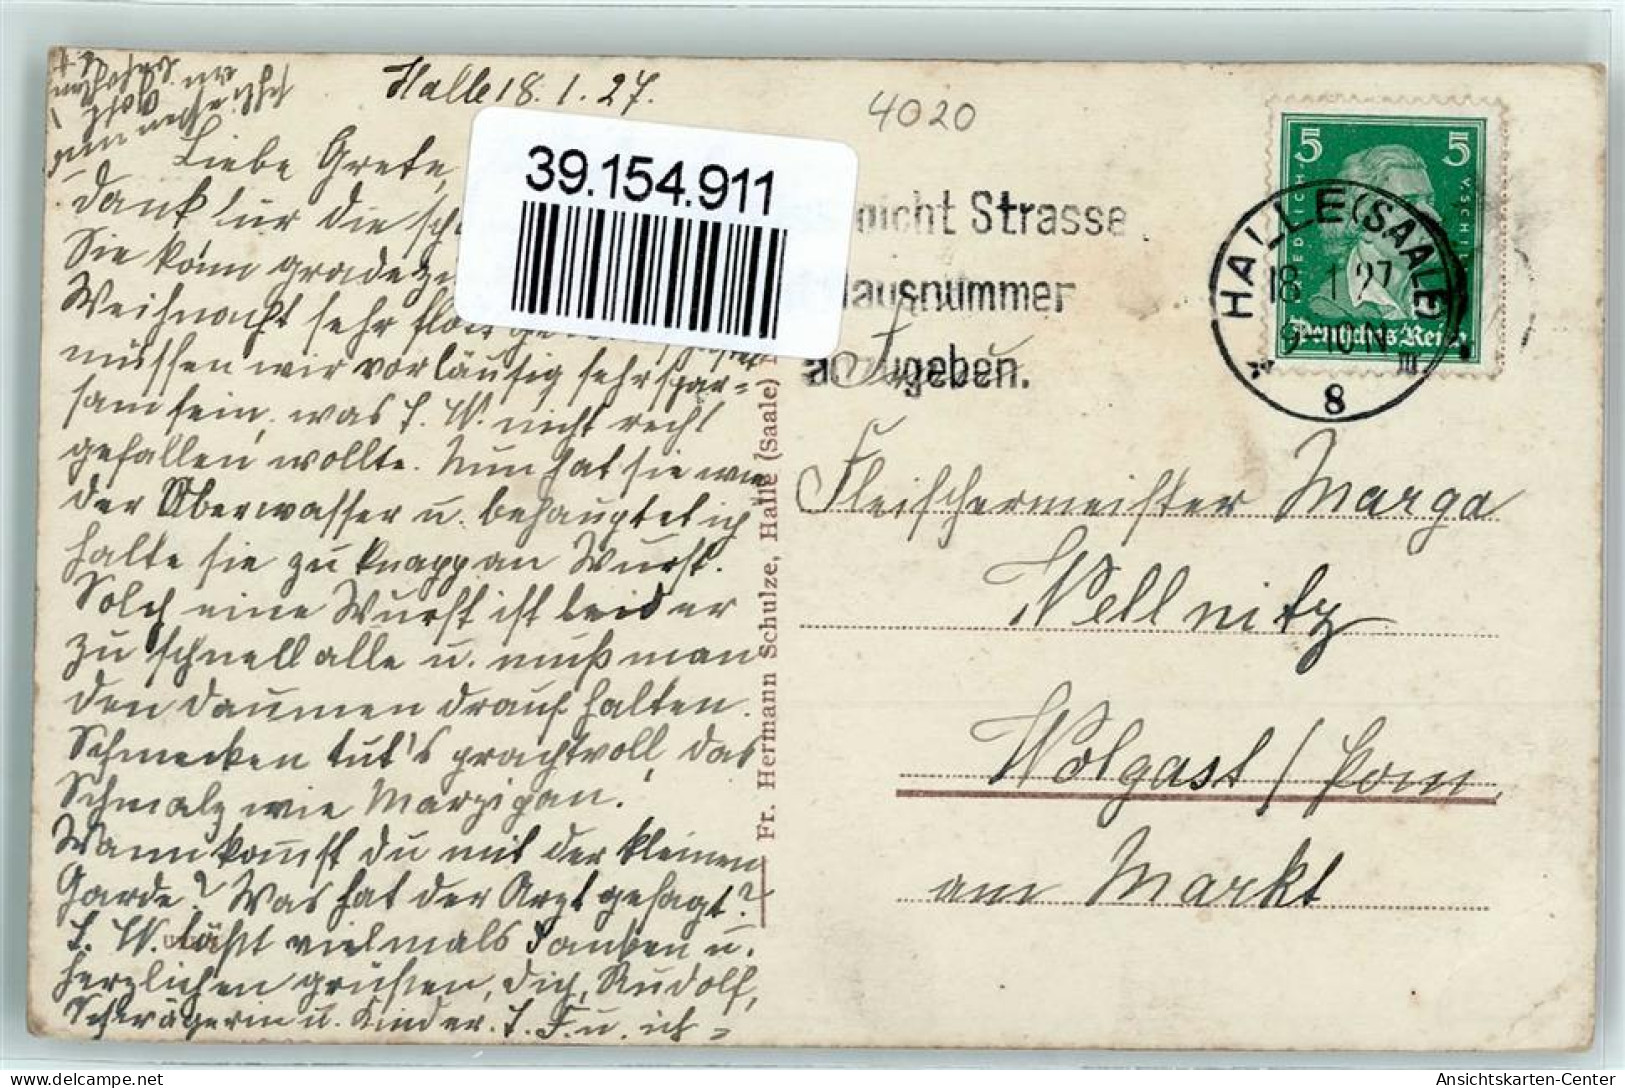 Halle 18. 1. 27.
4020
Liebe Grete,
Dank für die
Sie kann gradezu
Weihnacht sehr flott
müssen wir vorläufig sehr spar-
sam sein, was S. W. nicht recht
gefallen wollte. Nun hat sie wie
der Oberwasser u. behauptet ich
halte sie zu knapp an Wurst.
Solch eine Wurst ist leider
zu schnell alle u. muß man
den Daumen drauf halten.
Schmecken tut's prachtvoll, das
Schmalz wie Marzipan.
Wann kommst du mit der kleinen
Garde? Was hat der Arzt gesagt?
S. W. läßt vielmals danken u.
herzlichen grüßen, dich, Rudolf,
Schwägerin u. Kinder. S. F. u. ich
39.154.911
nicht Strasse
Hausnummer
anzugeben.
5 5
Deutsches Reich
HALLE (SAALE)
18. 1. 27
9-10 N
8
Fr. Hermann Schulze, Halle (Saale)
Fleischermeister Marga
Wellnitz
Wolgast / Pom
am Markt
AnsichtsKarten-Center